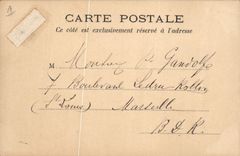 CARTE POSTALE
Ce côté est exclusivement réservé à l'adresse
M Monsieur P. Gandolfi
7 Boulevard Ledru-Rollin
(St Louis) Marseille
B.d.R.